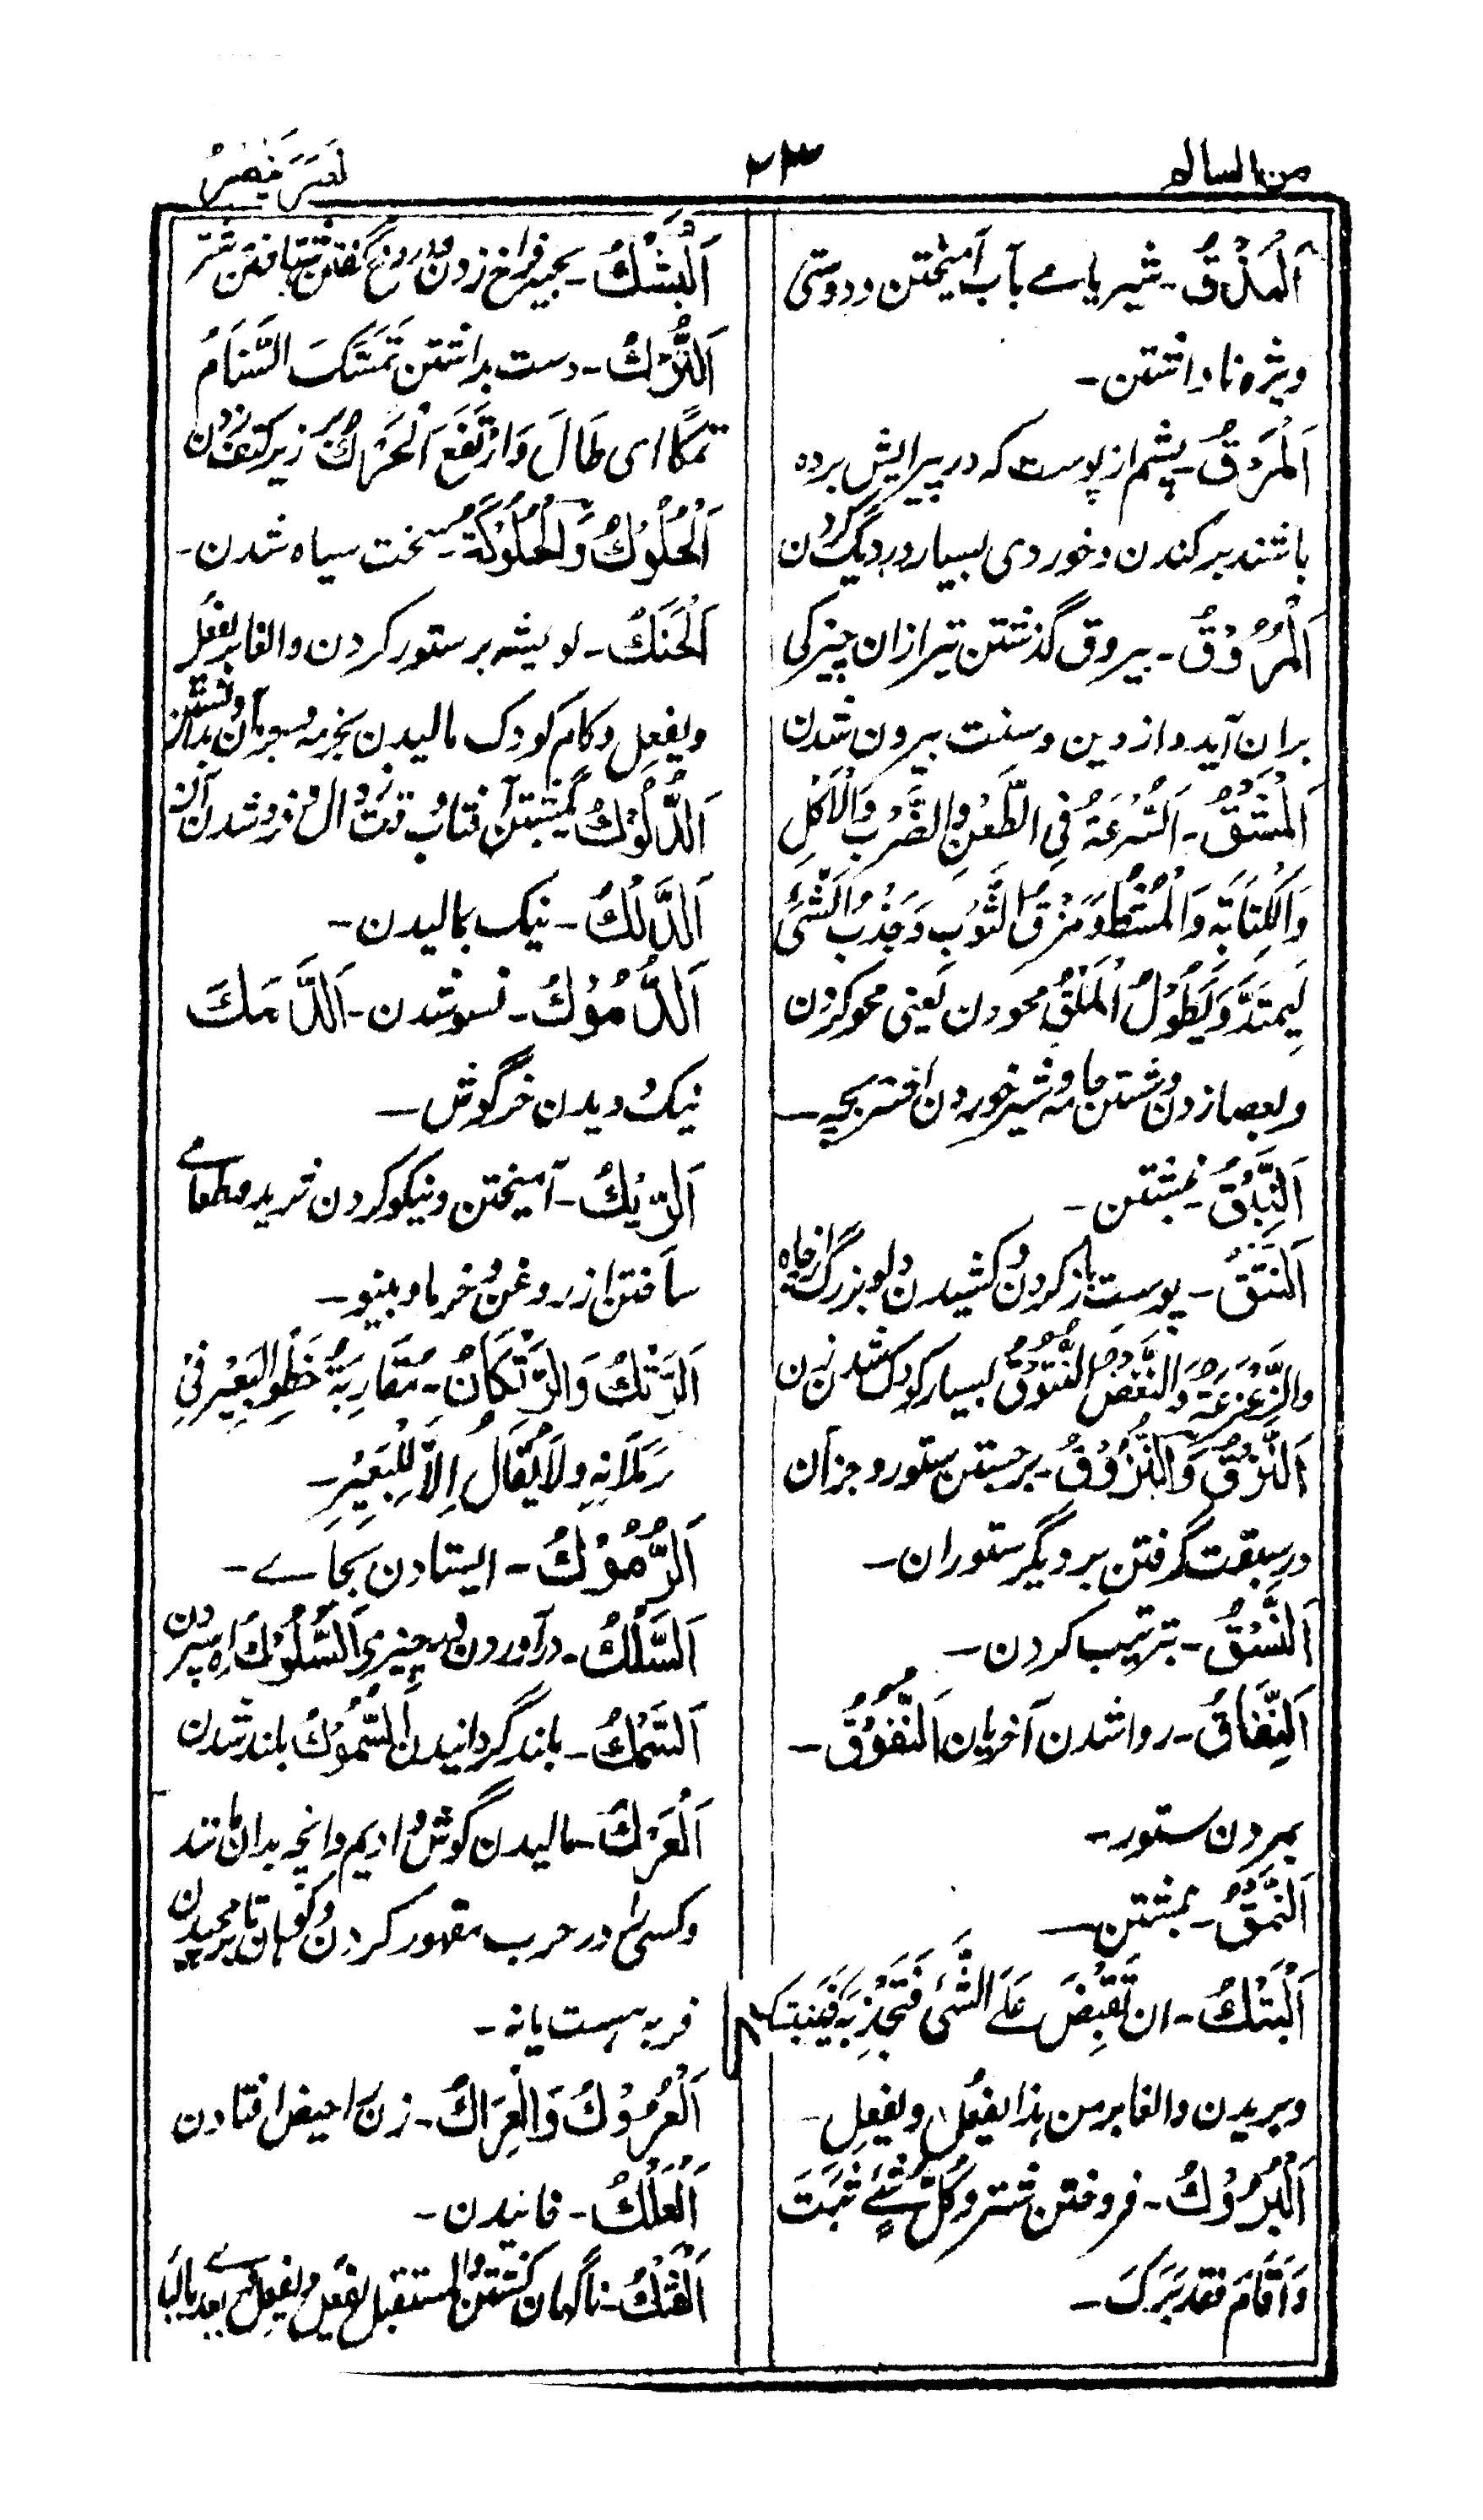 من السالم
۲۳
نصر ینصر
اَلْمَذْقُ - شیر یا مے بآب آمیختن و دوستی
ویژه نا داشتن -
اَلْمَرْقُ - پشم از پوست که در پیرایش برده
باشند بر کندن و خوردی بسیار در دیگ کردن
اَلْمُرُوْقُ - بیروق گذشتن تیر از آن چیز کی
بران آید و از دین و سنت بیرون شدن
اَلْمَشْقُ - اَلسُّرْعَةُ فِی الطَّعْنِ وَالضَّرْبِ وَالْاَکْلِ
وَالْکِتَابَةِ وَالْمَشْطِ وَمَزْقُ الثَّوْبِ وَجَذْبُ الشَّیْءِ
لِیَمْتَدَّ وَیَطُوْلَ اَلْمَلْقُ محو دن یعنی محو کردن
و بعصا زدن و شستن جامه و شیر خوردن اشتر بچه -
اَلنَّبْقُ - نبشتن -
اَلنَّتْقُ - پوست باز کردن و کشیدن دلو بزرگ از چاه
وَالزَّعْزَعَةُ وَالنَّفْضُ اَلنُّتُوْقُ بسیار کودک شدن زن
اَلنَّزْقُ وَالنُّزُوْقُ - برجستن ستور و جز آن
در سبقت گرفتن بر دیگر ستوران -
اَلنَّسْقُ - ترتیب کردن -
اَلنَّفَاقُ - روا شدن آخریان اَلنُّفُوْقُ -
بمردن ستور -
اَلنَّمْقُ - نبشتن -
اَلْبَتْكُ - ان تَقْبِضَ عَلَی الشَّیْءِ فَتَجْذِبَهٗ فَیَنْبَتِكَ
و بریدن والغابر من هذا یفعُل ویفعِل -
اَلْبُرُوْكُ - فرو خفتن شتر و کُلُّ شَیْءٍ ثَبَتَ
وَاَقَامَ فقد بَرَكَ -
اَلْبَشْكُ - بخیه فراخ زدن و دروغ گفتن و شتافتن شتر
اَلتَّرْكُ - دست بداشتن تَمَكَ السَّنَامُ
تَمْكًا ای طَالَ وَارْتَفَعَ اَلْحَرْكُ بر زیر کتف زدن
اَلْحُلُوْكُ وَالْحُلُوْكَةُ - سخت سیاه شدن -
اَلْحَنْكُ - لویشه بر ستور کردن والغابر یفعُل
ویفعِل و کام کودک مالیدن بخرمه و جز آن
اَلدُّلُوْكُ گشتن آفتاب وقت زوال و فرو شدن آن
اَلدَّلْكُ - نیک بمالیدن -
اَلدُّمُوْكُ - نسو شدن - اَلدَّمْكُ
نیک دویدن خرگوش -
اَلرَّبْكُ - آمیختن و نیکو کردن ثرید و طعامے
ساختن از روغن و خرما و پینو -
اَلرَّتْكُ وَالرَّتَكَانُ - مُقَارَبَةُ خَطْوِ الْبَعِیْرِ فِیْ
رَمَلَانِهٖ وَلَا یُقَالُ اِلَّا لِلْبَعِیْرِ -
اَلرُّمُوْكُ - ایستادن بجاے -
اَلسَّلْكُ - در آوردن در چیزی اَلسُّلُوْكُ راه سپردن
اَلسَّمْكُ - بلند گردانیدن اَلسُّمُوْكُ بلند شدن
اَلْعَرْكُ - مالیدن گوش و ادیم و انچه بدان ماند
و کسی را در حرب مقهور کردن و کوهان تا
فربه هست یا نه -
اَلْعُرُوْكُ وَالْعِرَاكُ - زن را حیض افتادن
اَلْعَلْكُ - خائیدن -
اَلْفَتْكُ - ناگهان کشتن والمستقبل یفعُل ویفعِل